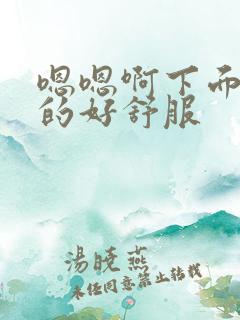 嗯嗯啊下面
的好舒服
湯曉燕
未经同意禁止转载